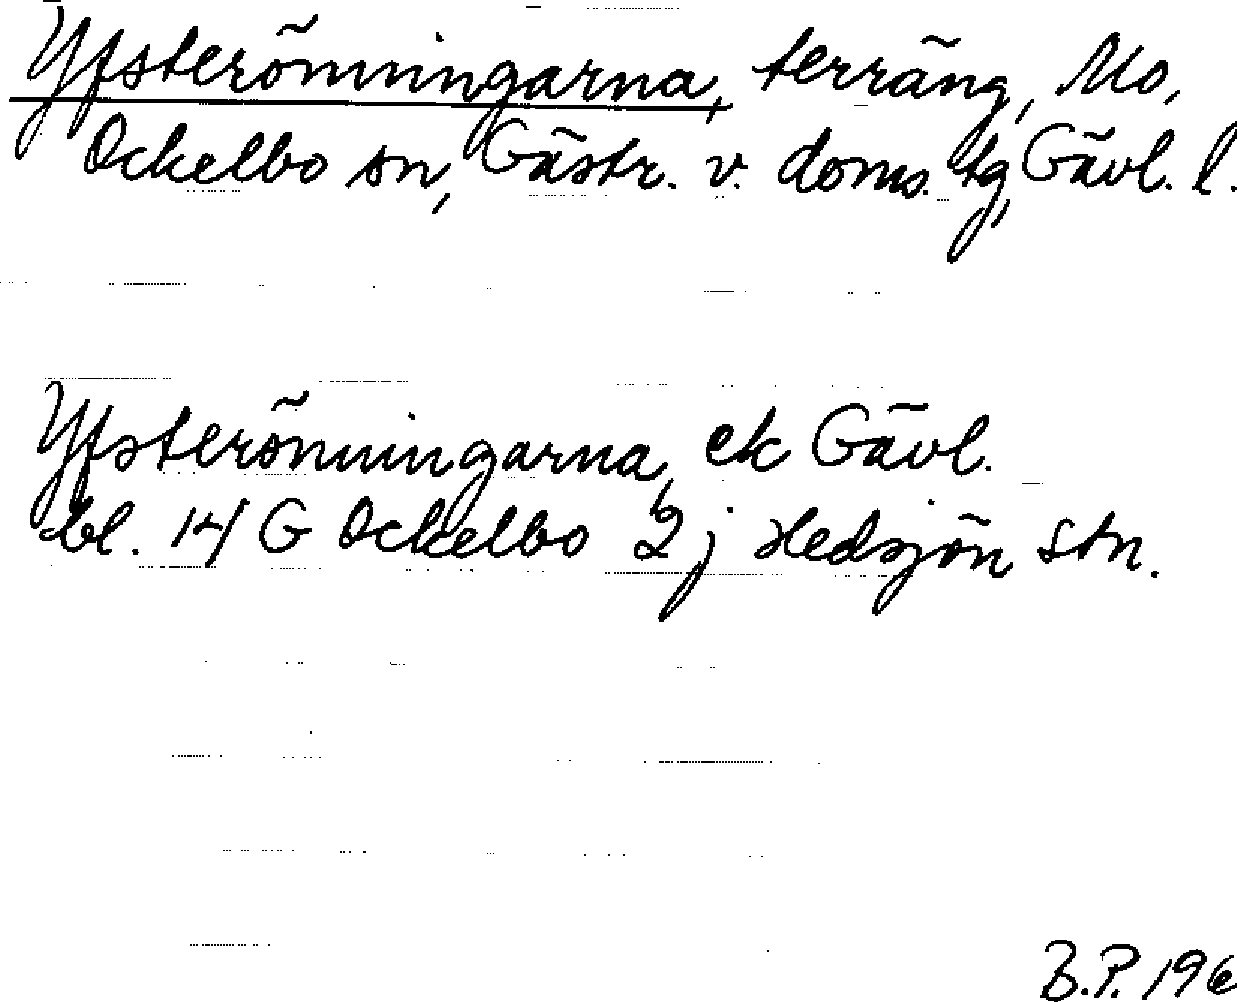 Yfsterönningarna, terräng, Mo,
Ockelbo sn, Gästr. v. doms. tg, Gävl. l.
Yfsterönningarna, ek Gävl.
bl. 14 G Ockelbo 2 j Hedsjön Stn.
B.P. 196